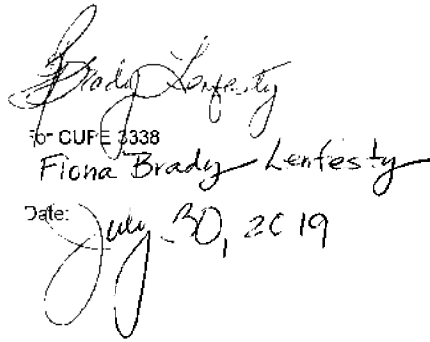 Brady Lenfesty
For CUPE 3338
Fiona Brady Lenfesty
Date:
July 30, 2019